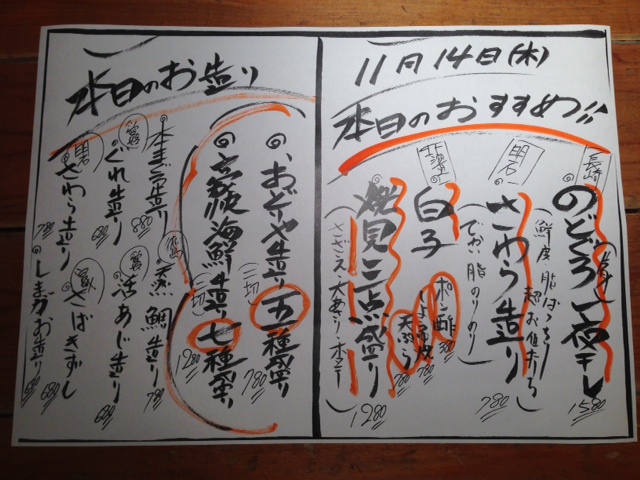 11月14日(木)
本日のおすすめ!!
長崎
のどぐろ一夜干し
1580
明石
さわら造り
(鮮度 脂ばっちり
超お値打ち
でかい 脂のりのり)
780
白子
ポン酢 780
天ぷら 780
焼貝三点盛り
(さざえ・大あさり・ホタテ)
1280
本日のお造り
おどりや造り五種盛り
二切
780
海鮮造り七種盛り
二切
1280
本まぐろ造り
880
天然鯛造り
780
ぐれ造り
680
活あじ造り
680
明石
さわら造り
780
さばきずし
680
しまあじお造り
680